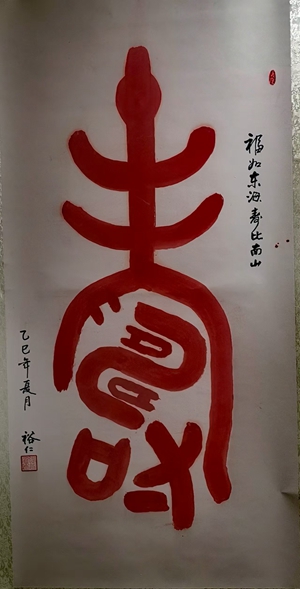 福如东海寿比南山
壽
乙巳年夏月 裕仁